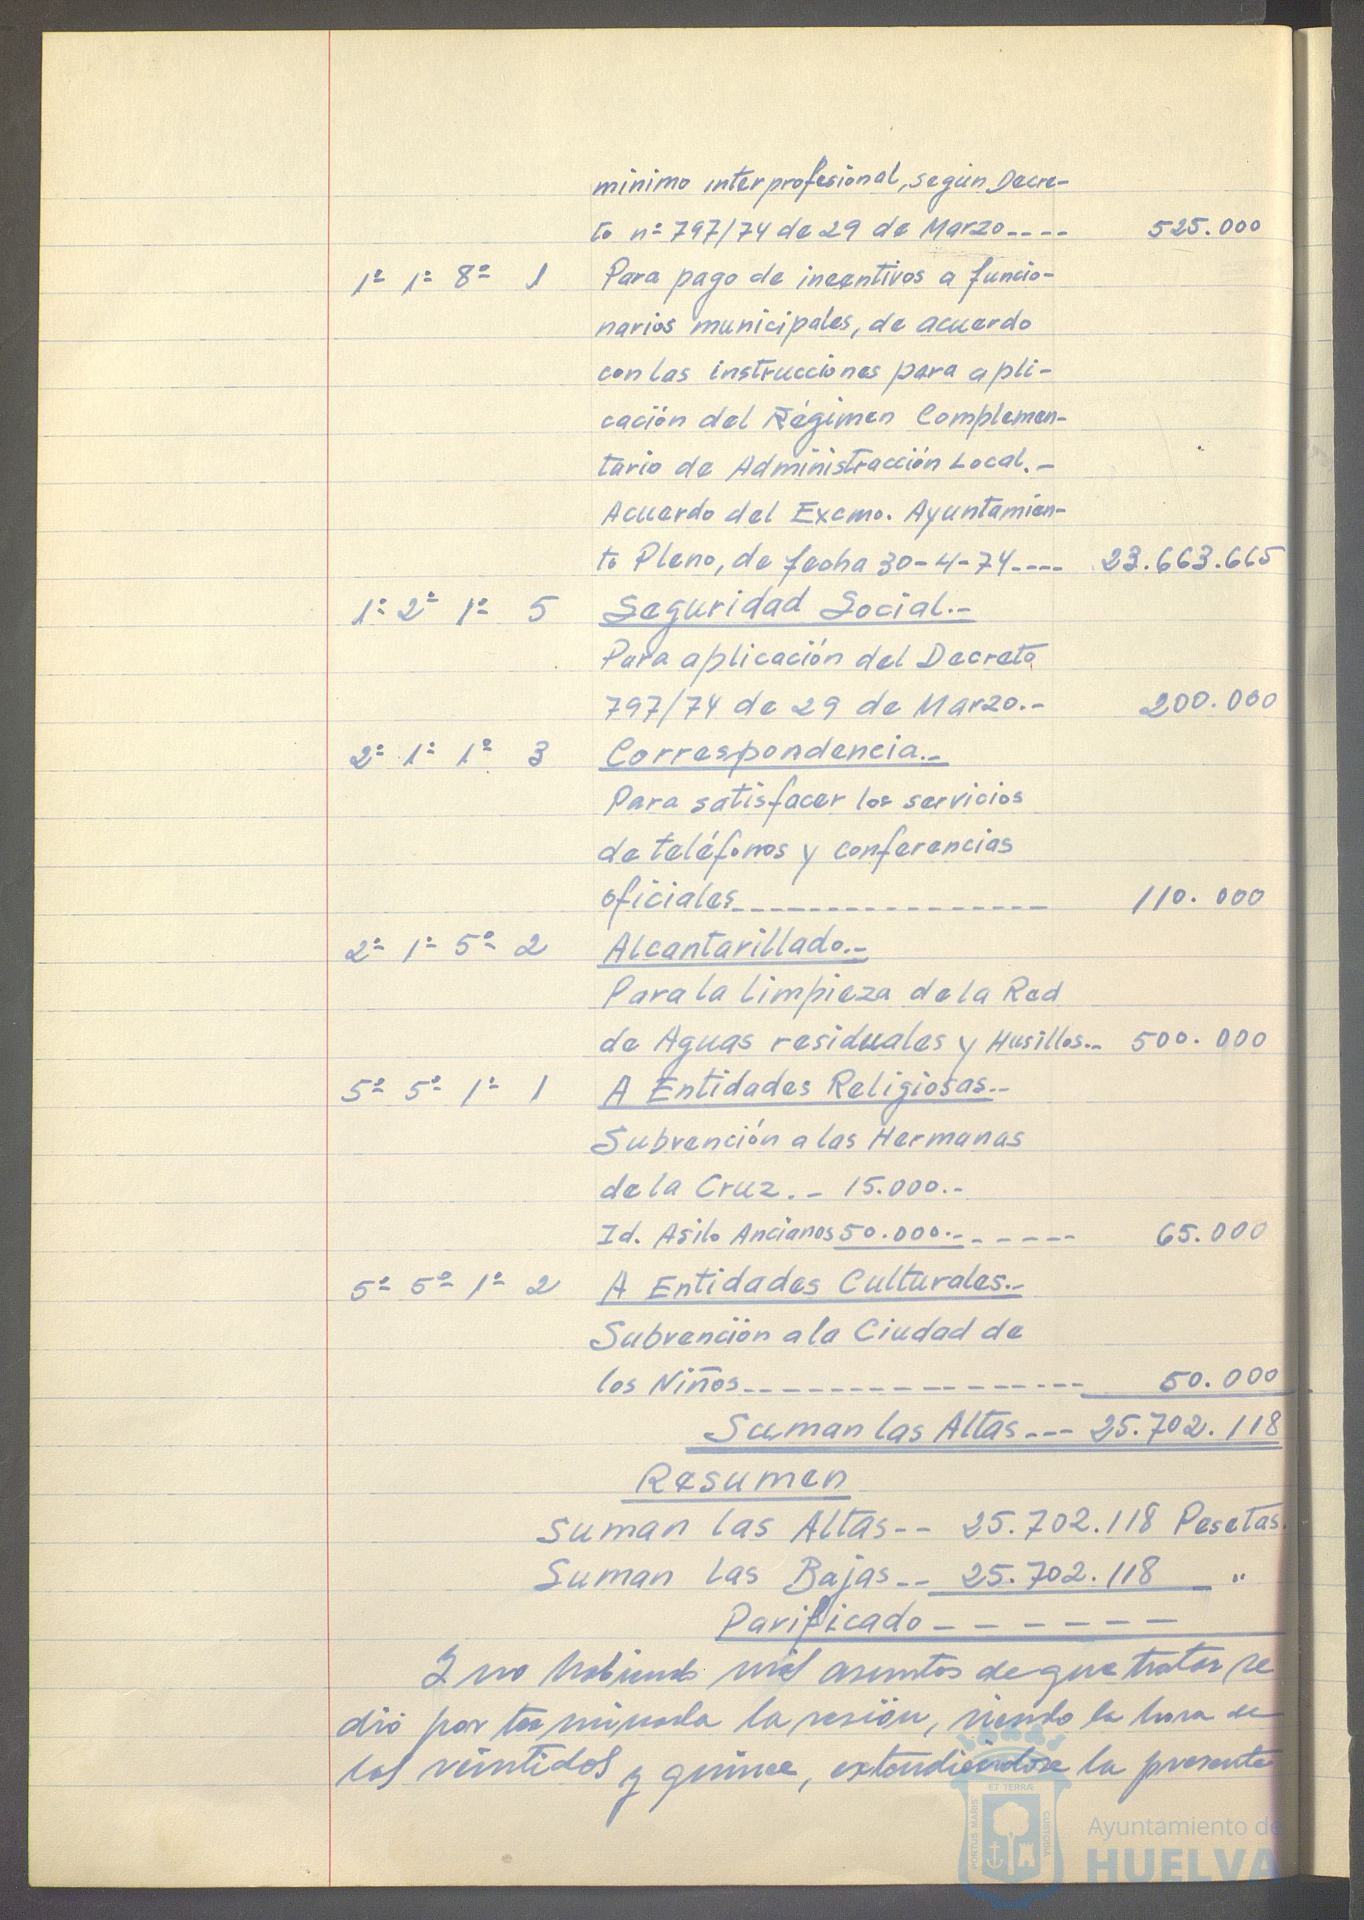 minimo interprofesional, según Decre-
to nº 797/74 de 29 de Marzo---- 525.000
1º 1º 8º 1 Para pago de incentivos a funcio-
narios municipales, de acuerdo
con las instrucciones para apli-
cación del Régimen Complemen-
tario de Administracción Local.-
Acuerdo del Excmo. Ayuntamien-
to Pleno, de fecha 30-4-74---- 23.663.665
1º 2º 1º 5 Seguridad Social.-
Para aplicación del Decreto
797/74 de 29 de Marzo.- 200.000
2º 1º 1º 3 Correspondencia.-
Para satisfacer los servicios
de teléfonos y conferencias
oficiales---------------- 110.000
2º 1º 5º 2 Alcantarillado.-
Para la limpieza de la Red
de Aguas residuales y Husillos.- 500.000
5º 5º 1º 1 A Entidades Religiosas.-
Subvención a las Hermanas
de la Cruz.- 15.000.-
Id. Asilo Ancianos 50.000.------ 65.000
5º 5º 1º 2 A Entidades Culturales.-
Subvención a la Ciudad de
los Niños----------------- 50.000
Suman las Altas--- 25.702.118
Resumen
Suman las Altas-- 25.702.118 Pesetas.
Suman las Bajas-- 25.702.118 "
Parificado------
Y no habiendo más asuntos de que tratar se
dió por terminada la sesión, siendo la hora de
las veintidos y quince, extendiéndose la presente
PORTUS MARIS ET TERRÆ CUSTODIA
Ayuntamiento de
HUELVA